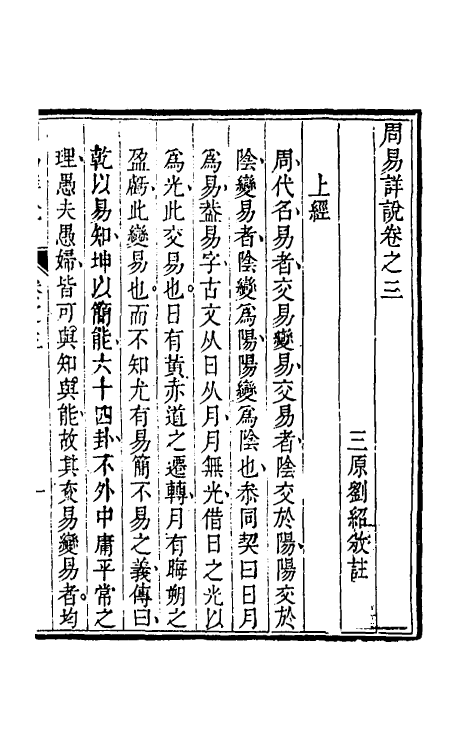 周易詳說卷之三
三原劉紹攽註
上經
周代名易者交易變易交易者陰交於陽陽交於
陰變易者陰變為陽陽變為陰也叅同契曰日月
為易葢易字古文从日从月月無光借日之光以
為光此交易也日有黃赤道之遷轉月有晦朔之
盈虧此變易也而不知尤有易簡不易之義傳曰
乾以易知坤以簡能六十四卦不外中庸平常之
理愚夫愚婦皆可與知與能故其交易變易者均